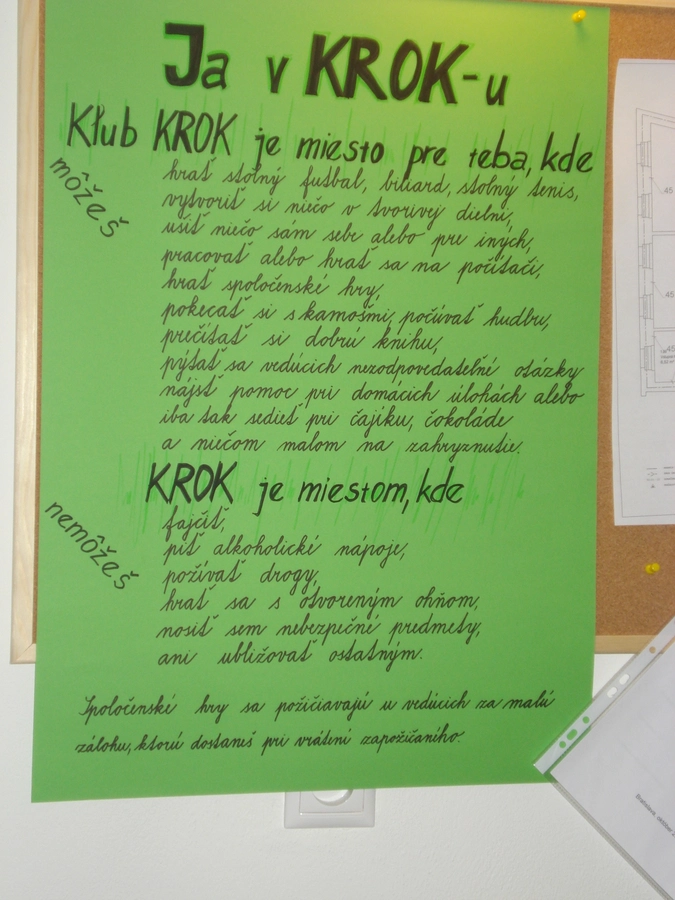 Ja v KROK-u
Klub KROK je miesto pre teba, kde
môžeš
hrať stolný futbal, biliard, stolný tenis,
vytvoriť si niečo v tvorivej dielni,
ušiť niečo sám sebe alebo pre iných,
pracovať alebo hrať sa na počítači,
hrať spoločenské hry,
pokecať si s kamošmi, počúvať hudbu,
prečítať si dobrú knihu,
pýtať sa vedúcich nezodpovedateľné otázky
nájsť pomoc pri domácich úlohách alebo
iba tak sedieť pri čajíku, čokoláde
a niečom malom na zahryznutie.
KROK je miestom, kde
nemôžeš
fajčiť,
piť alkoholické nápoje,
požívať drogy,
hrať sa s otvoreným ohňom,
nosiť sem nebezpečné predmety,
ani ubližovať ostatným.
Spoločenské hry sa požičiavajú u vedúcich za malú
zálohu, ktorú dostaneš pri vrátení zapožičaného.
45
45
45
Bratislava, október